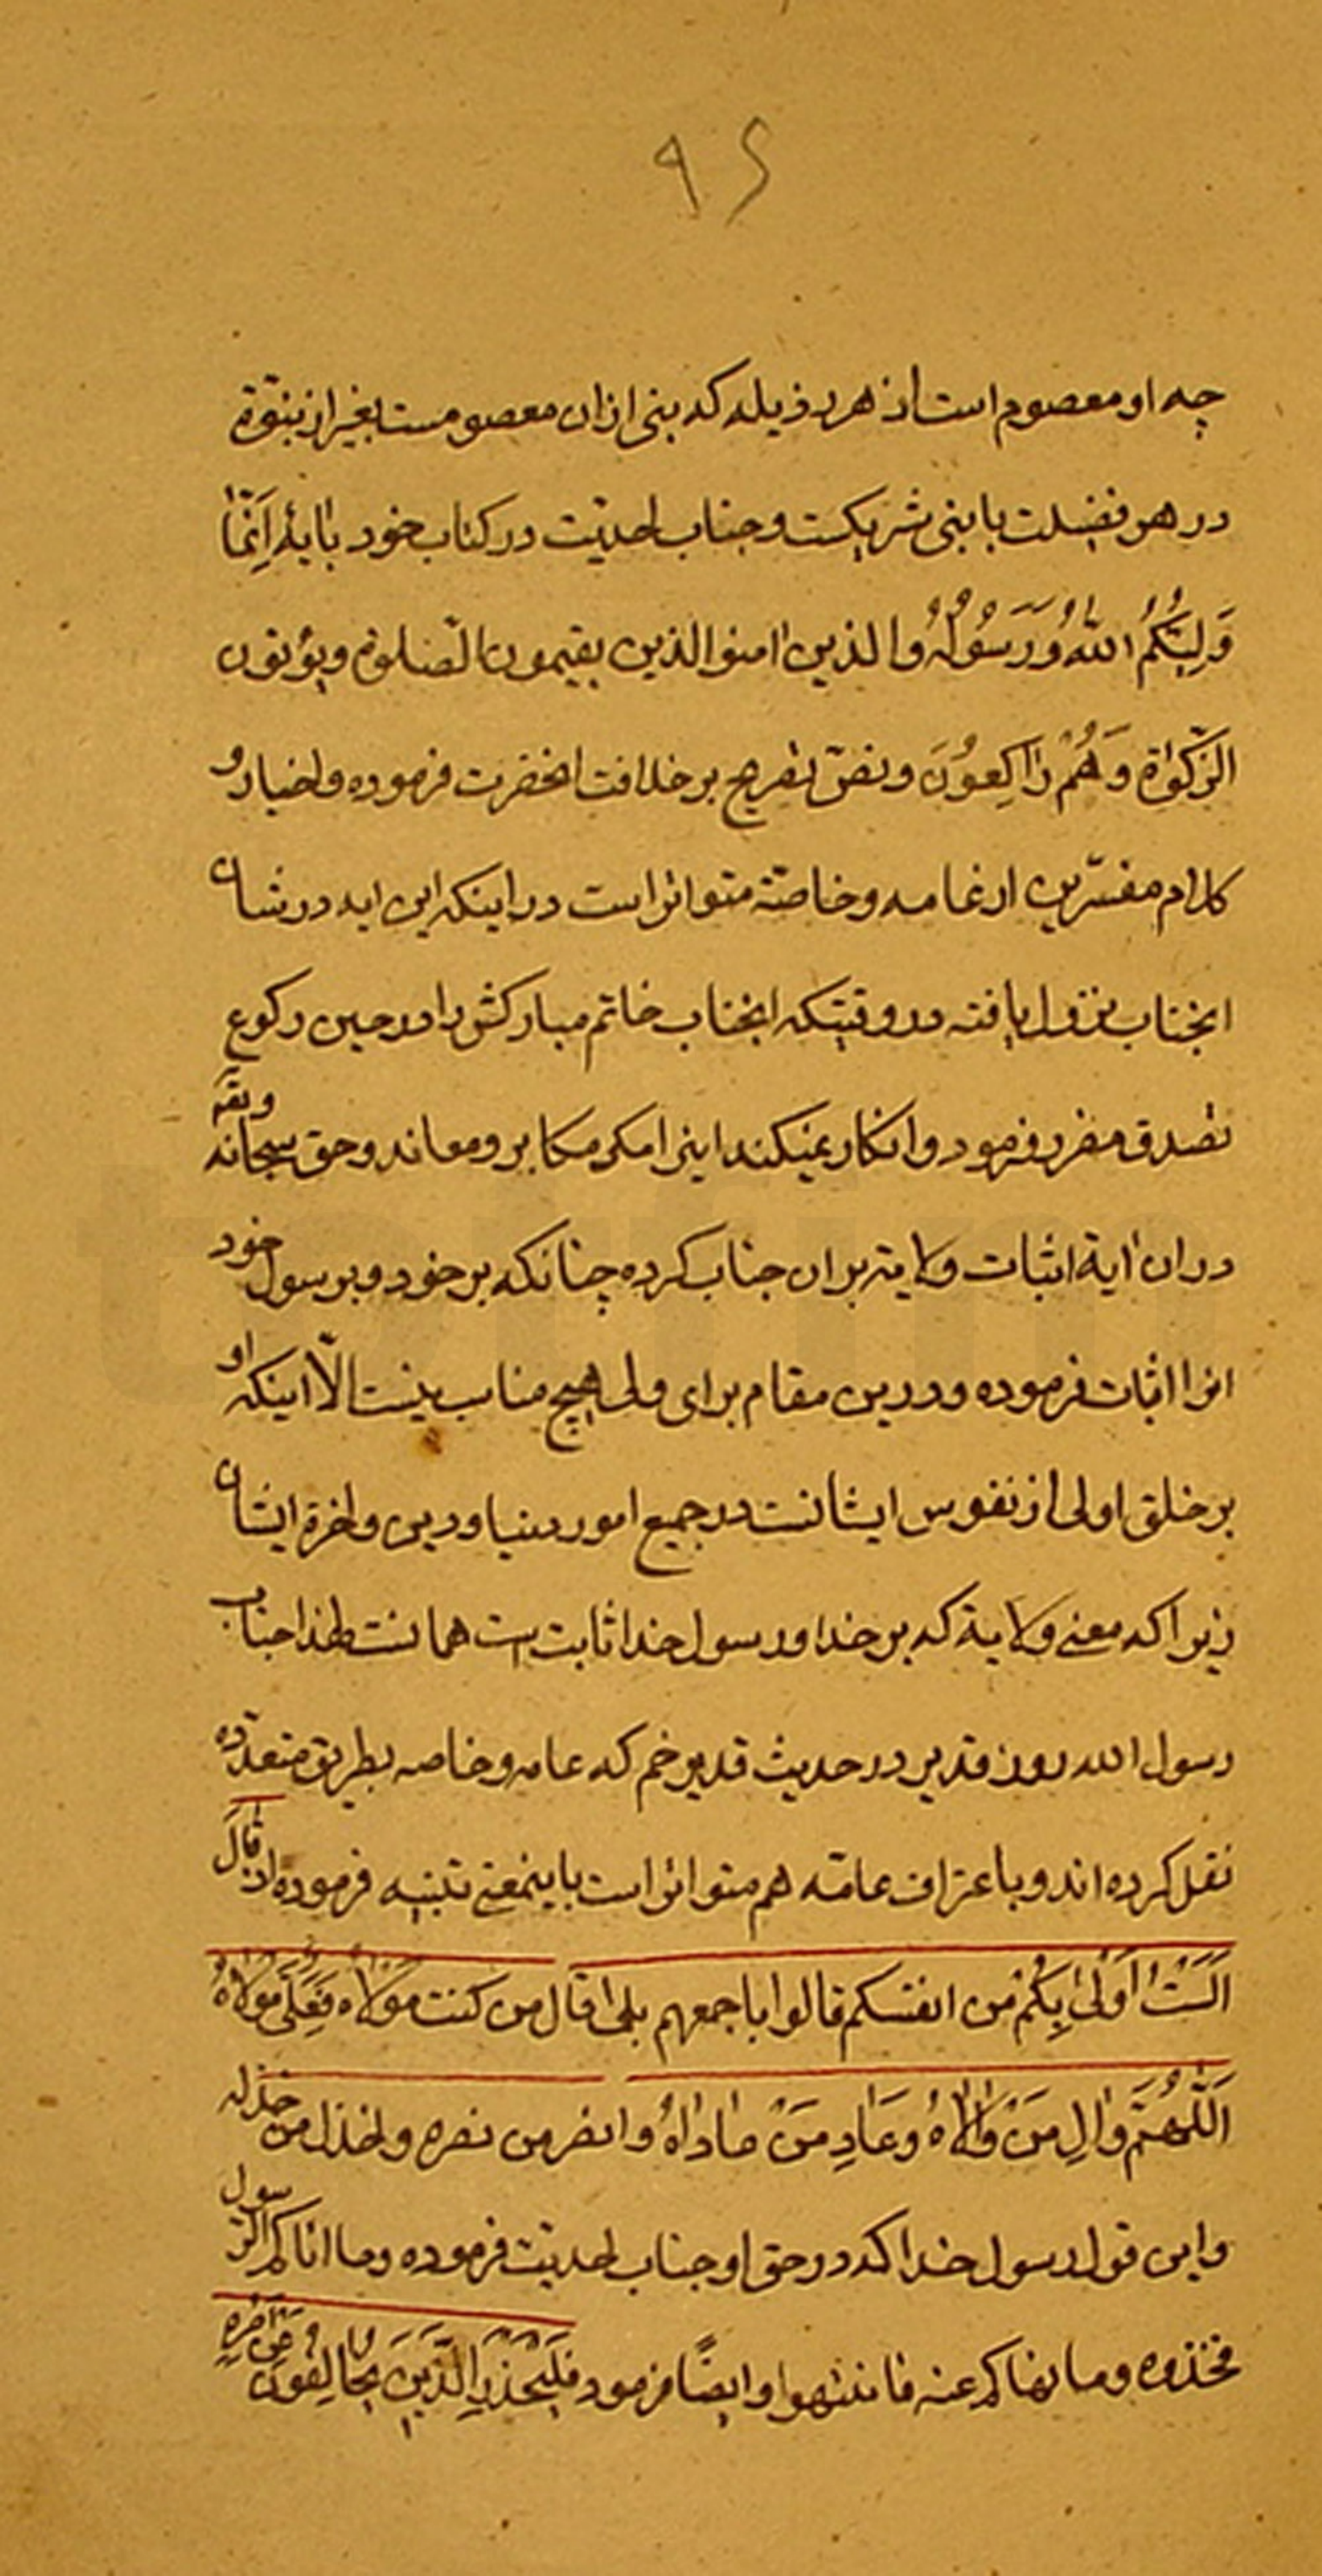 ۹۶
چه او معصوم است از هر رذیله که بنی ازان معصومست بغیر از بنوّة
در هر فضیلت با بنی شریکست و جناب احدیّت در کتاب خود بایۀ اِنَّمَا
وَلِیُّکُمُ اللّهُ وَرَسُولُهُ والذین امنوا الذین یقیمون الصّلوة ویؤتون
الزَّکوٰةَ وَهُمْ رٰاکِعوُنَ و نصّ بصریح بر خلافت انحضرت فرموده و اخبار و
کلام مفسّرین از عامه و خاصّة متواتر است در اینکه این ایه در شان
انجناب نزول یافته در وقتیکه انجناب خاتم مبارکش را در حین رکوع
تصدق مفرد فرمود و انکار نمیکند اینرا مکر مکابر و معاند و حق سبحانه وتعٰه
در ان ایة اثبات ولایة بر ان جناب کرده چنانکه بر خود و بر رسول خود
انرا اثبات فرموده و درین مقام برای ولی هیچ مناسب نیست الّا اینکه او
بر خلق اولی از نفوس ایشانست در جمیع امور دنیا و دین و اخرة ایشان
زیرا که معنی ولایة که بر خدا و رسول خدا ثابت است همانست لهذا جناب
رسول الله روز قدیر در حدیث قدیر خم که عامه و خاصه بطریق متعدّده
نقل کرده اند و باعتراف عامّه هم متواتر است باینمعنی تنبیه فرموده اذ قٰالَ
اَلَسْتُ اَوْلیٰ بِکُمْ من انفسکم قالوا باجمعهم بلی قال من کنت مَوْلاه فَعَلی مَوْلاهُ
اَللّهُمَّ وٰالِ مَنْ وٰالاهُ وَعٰادِ مَنْ عٰادٰاهُ وانصر من نصره واخذل من خذله
و این قول رسول خدا که در حق او جناب احدیّت فرموده وما اتاکم الرّسول
فخذوه وما نهاکم عنه فانتهوا وایضًا فرمود فَلْیَحْذَرِ الَّذینَ یُخٰالِفُونَ عَنْ اَمْرِهِ